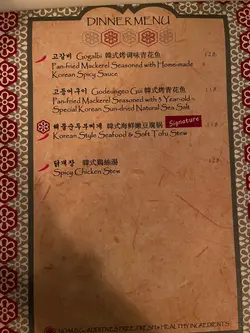 DINNER MENU
고갈비 Gogalbi 韓式烤調味青花魚
Pan-fried Mackerel Seasoned with Home-made
Korean Spicy Sauce
고등어구이 Godeungeo Gui 韓式烤青花魚
Pan-fried Mackerel Seasoned with 3 Year-old
Special Korean Sun-dried Natural Sea Salt
해물순두부찌개 韓式海鮮嫩豆腐鍋 Signature
Korean Style Seafood & Soft Tofu Stew
닭개장 韓式鷄絲湯
Spicy Chicken Stew